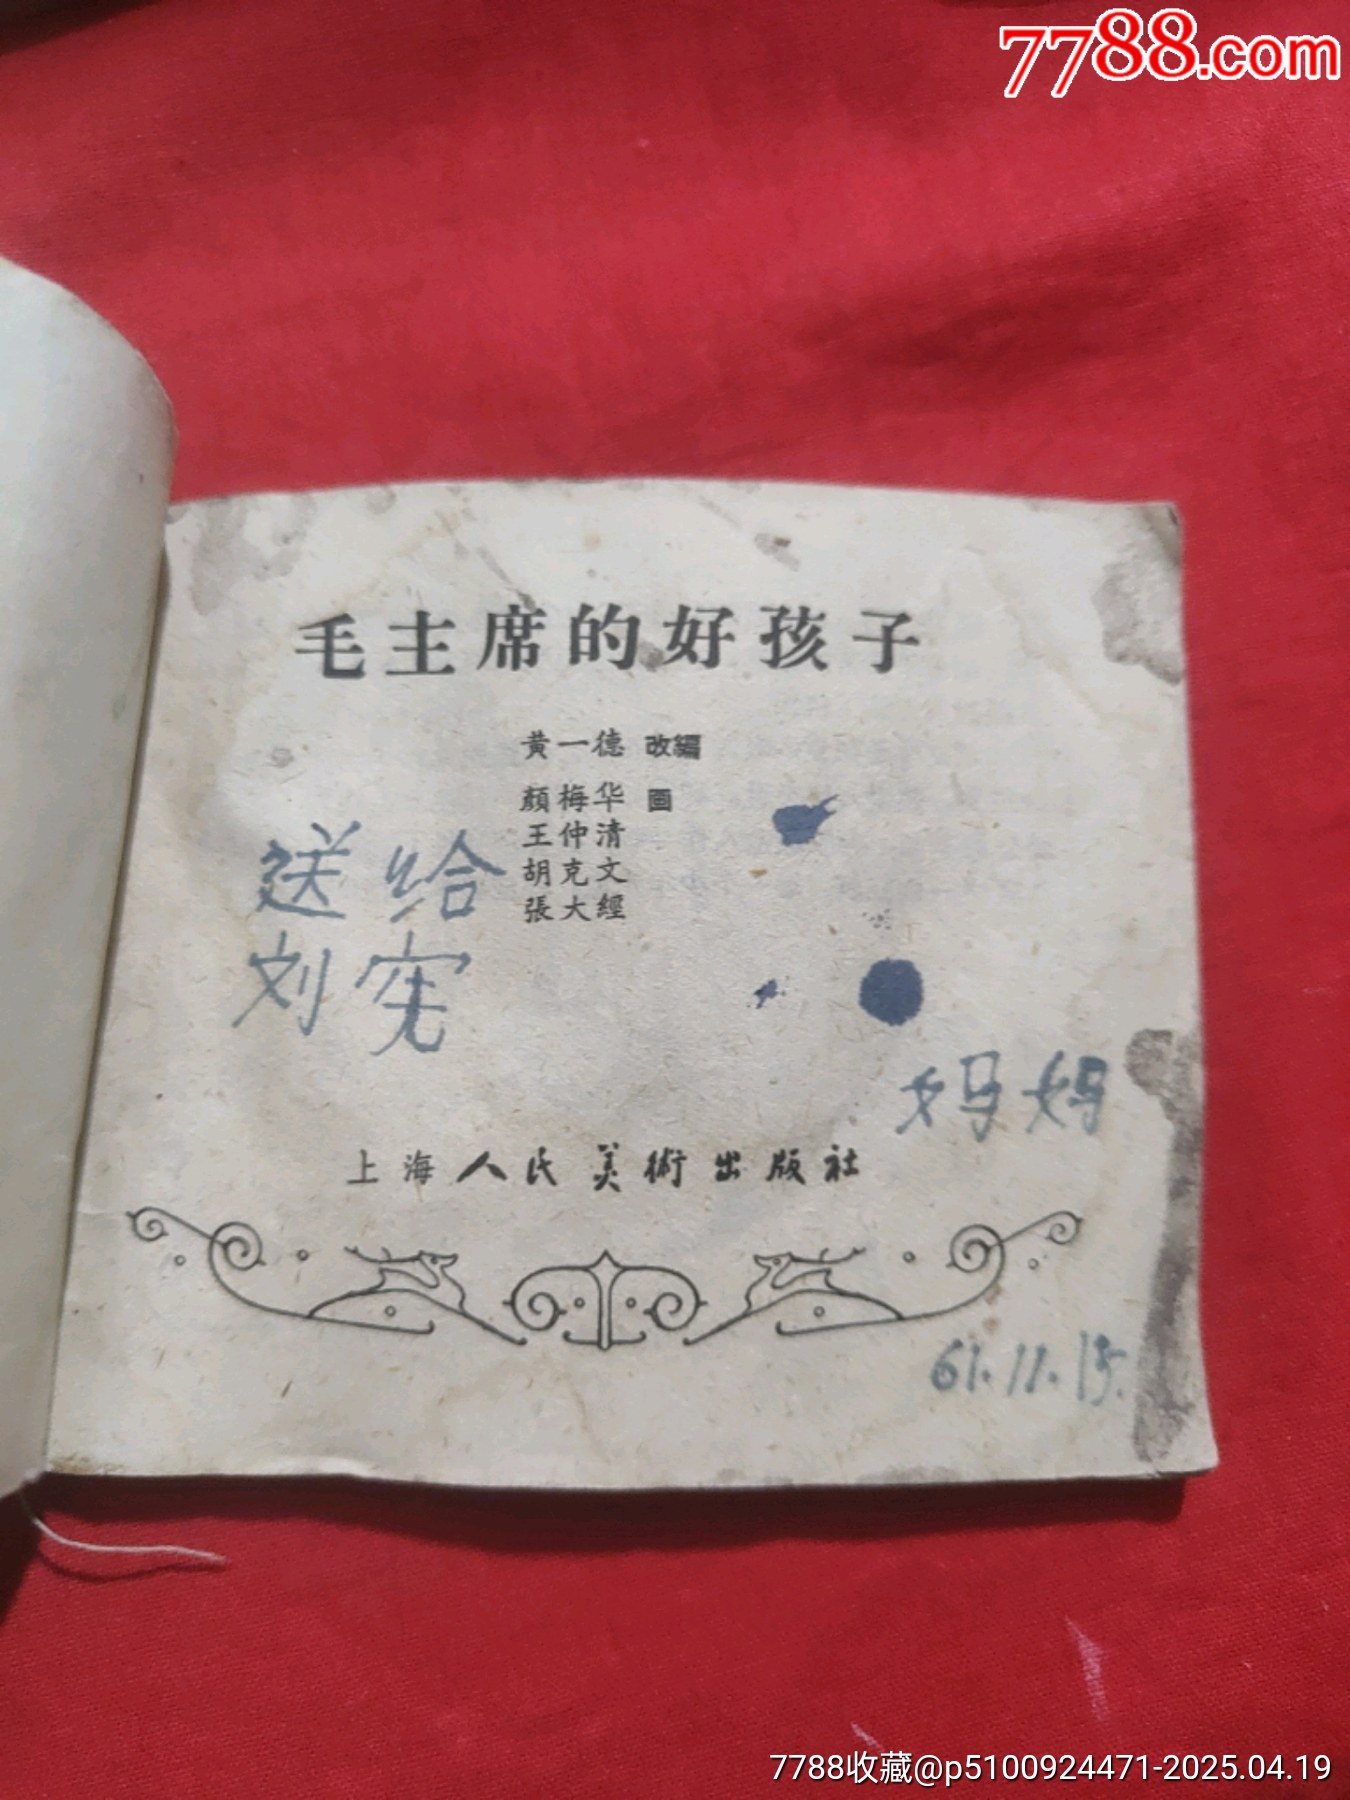 7788.com
毛主席的好孩子
黄一德 改編
顏梅华 画
王仲清
胡克文
張大經
送给
刘宪
妈妈
上海人民美術出版社
61.11.15.
7788收藏@p5100924471-2025.04.19